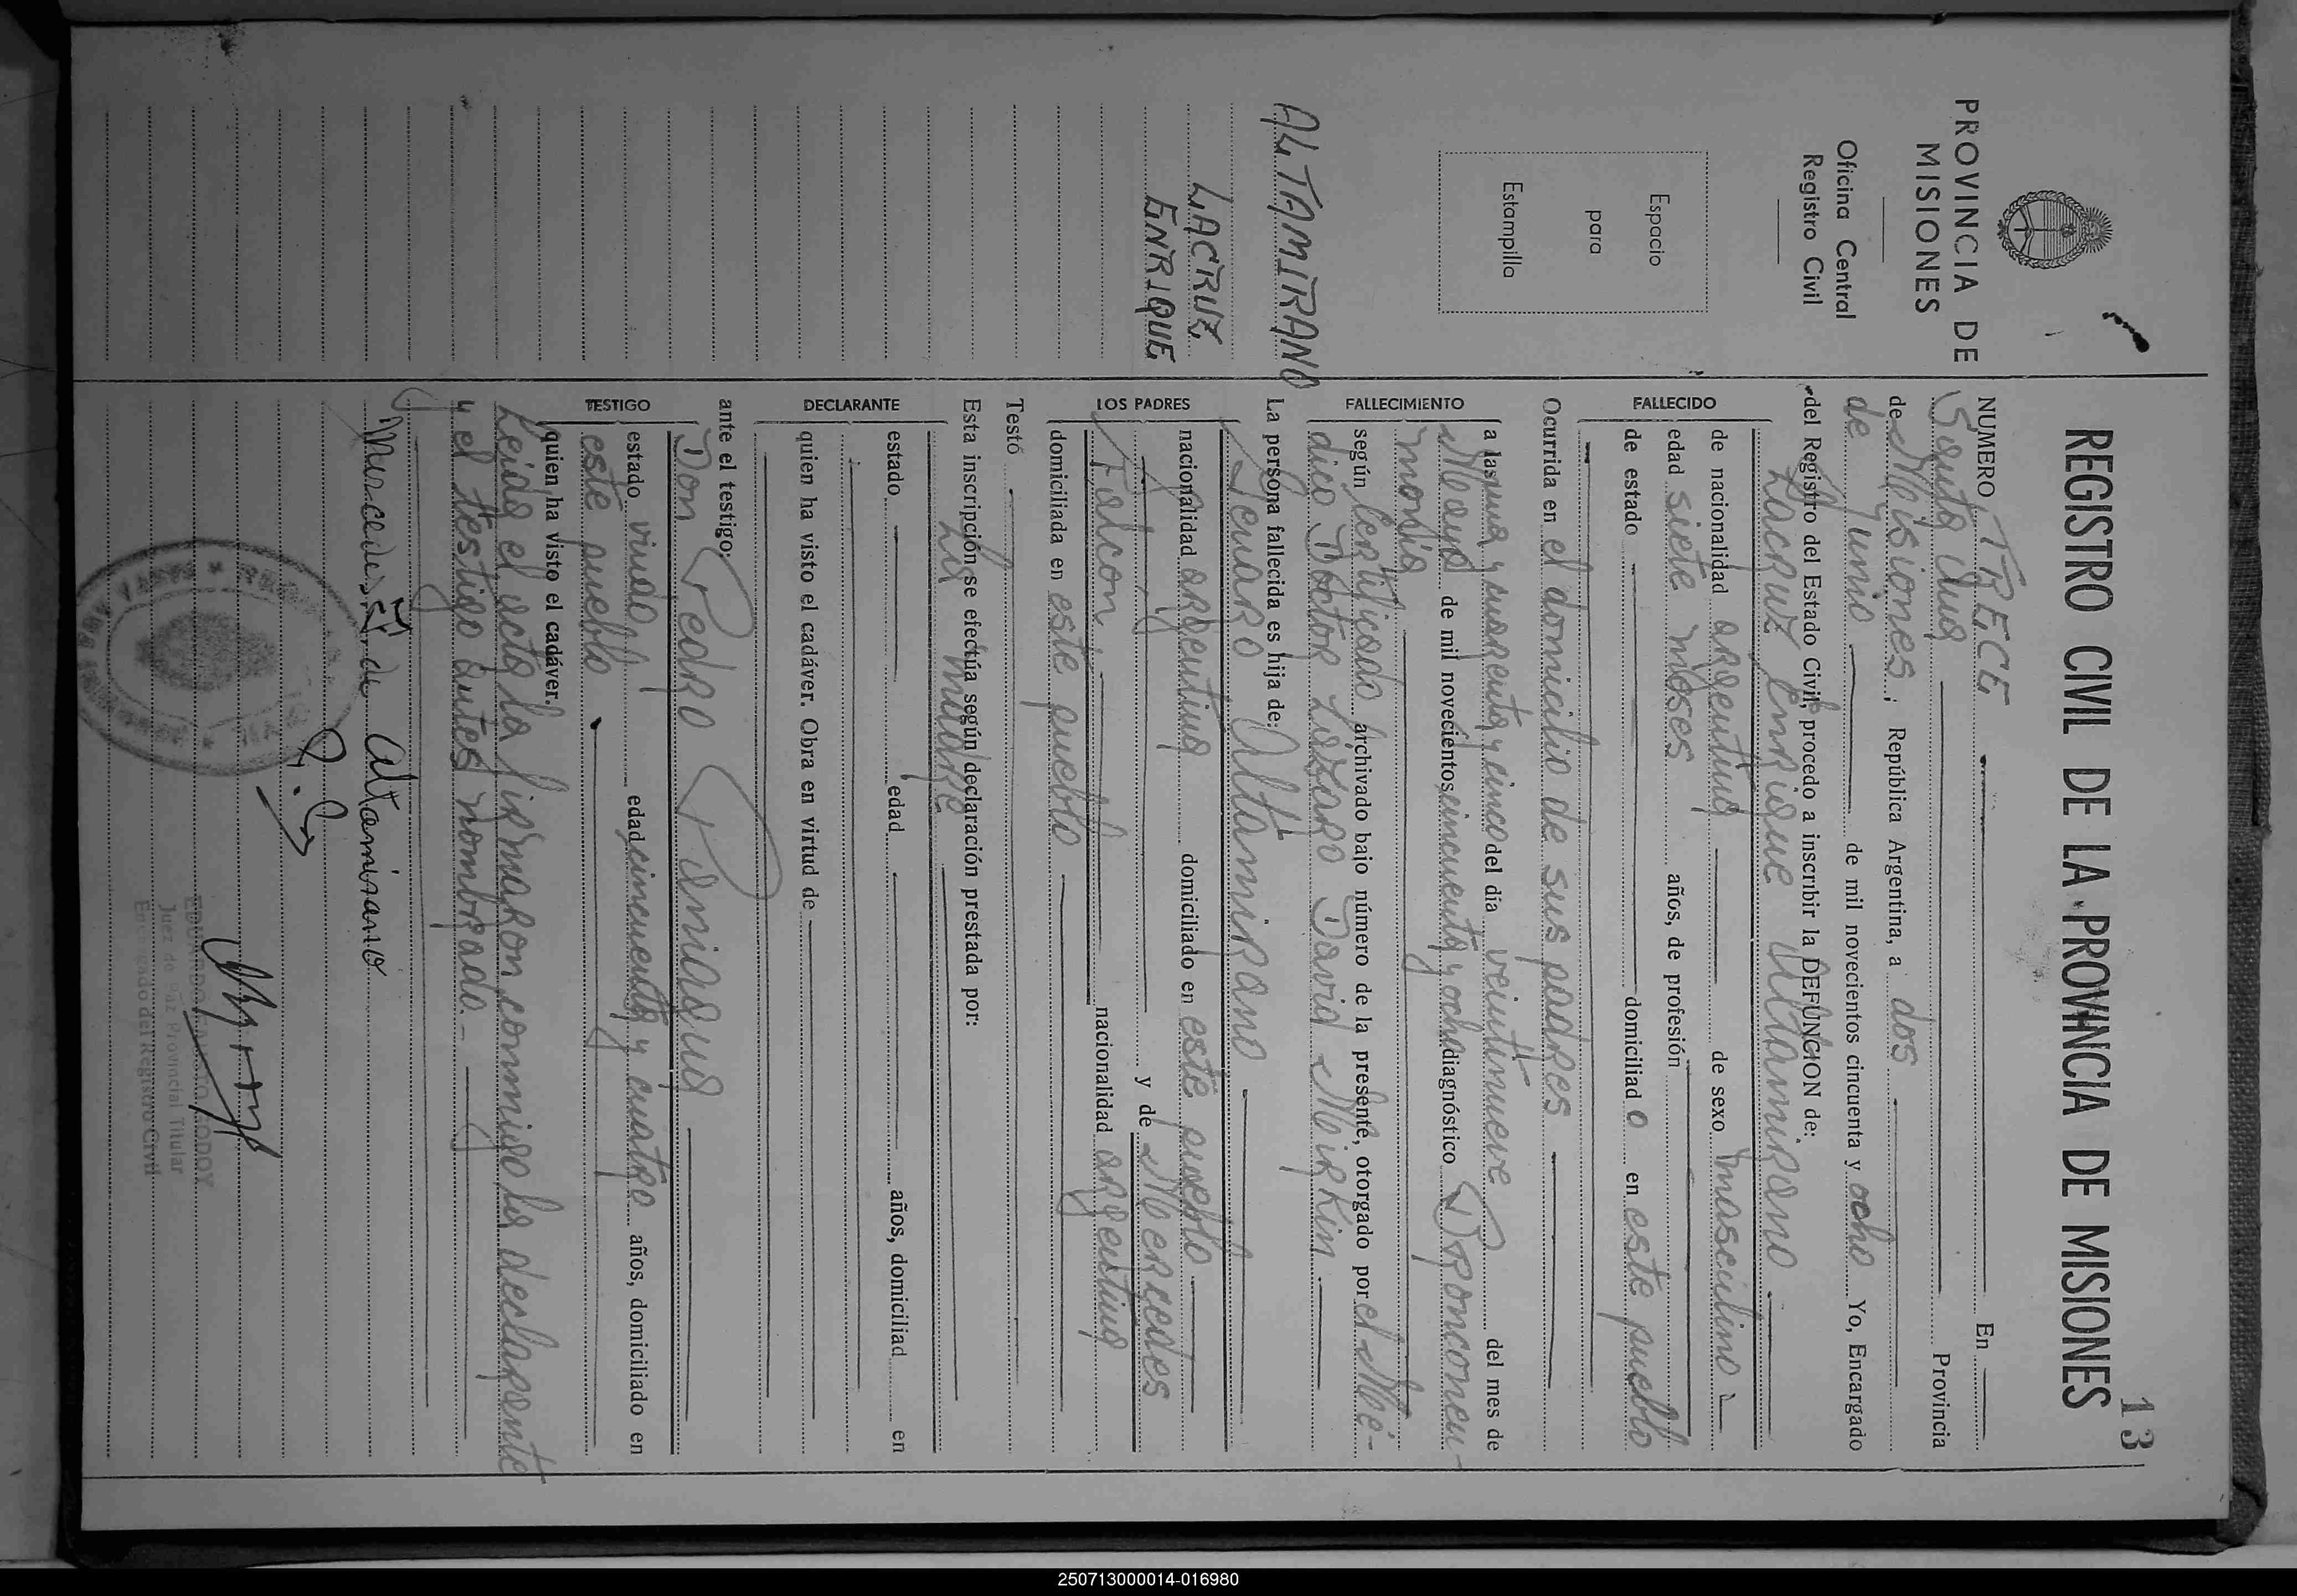 13
REGISTRO CIVIL DE LA PROVINCIA DE MISIONES
PROVINCIA DE
MISIONES
Oficina Central
Registro Civil
Espacio
para
Estampilla
ALTAMIRANO
LACRUZ
ENRIQUE
NUMERO TRECE En
Santa Ana Provincia
de Misiones, República Argentina, a dos
de Junio de mil novecientos cincuenta y ocho Yo, Encargado
del Registro del Estado Civil, procedo a inscribir la DEFUNCION de:
Lacruz Enrique Altamirano
FALLECIDO
de nacionalidad argentina de sexo masculino
edad siete meses años, de profesión
de estado domiciliado en este pueblo
Ocurrida en el domicilio de sus padres
FALLECIMIENTO
a las una y cuarenta y cinco del día veintinueve del mes de
Mayo de mil novecientos cincuenta y ocho diagnóstico Bronconeu-
monía
según certificado archivado bajo número de la presente, otorgado por el Mé-
dico Doctor Lázaro David Mirkin
La persona fallecida es hija de: Altamirano
LOS PADRES
Genaro
nacionalidad argentina domiciliado en este pueblo
y de Mercedes
Falcon nacionalidad argentina
domiciliada en este pueblo
Testó
Esta inscripción se efectúa según declaración prestada por:
La madre
DECLARANTE
estado edad años, domiciliad en
quien ha visto el cadáver. Obra en virtud de
ante el testigo:
Don Pedro
TESTIGO
estado viudo edad cincuenta y cuatro años, domiciliado en
este pueblo
quien ha visto el cadáver.
Leida el acta la firmaron conmigo la declarante
y el testigo antes nombrado.
Mercedes F. de Altamirano
Juez de Paz Provincial Titular
Encargado del Registro Civil
250713000014-016980